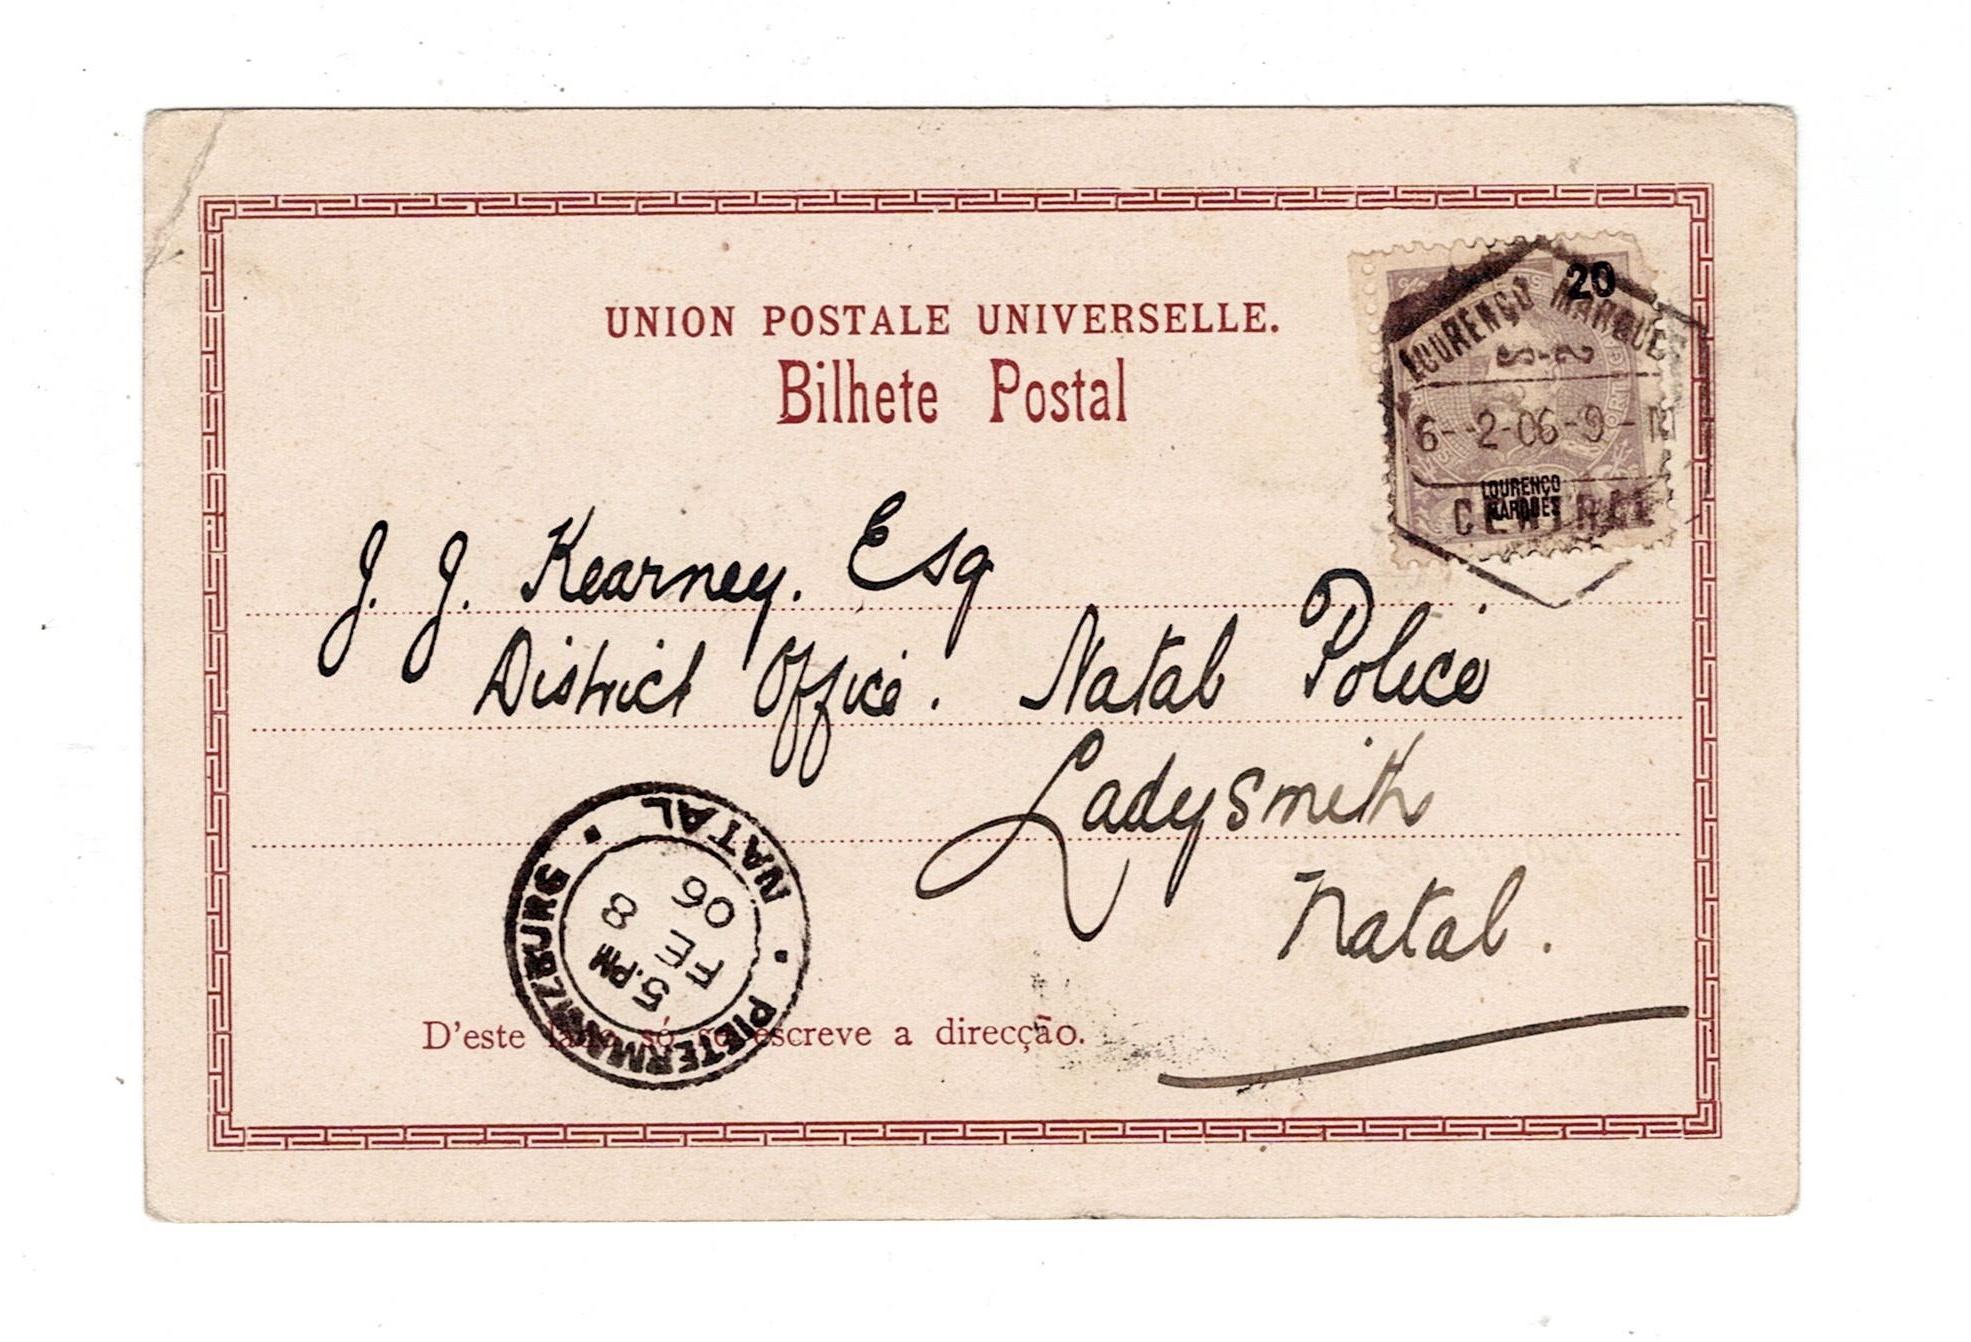 UNION POSTALE UNIVERSELLE.
Bilhete Postal
20
LOURENÇO MARQUES
6--2-06-9-M
LOURENÇO
MARQUES
CENTRAL
J. J. Kearney. Esq
District Office. Natal Police
Ladysmith
Natal.
PIETERMARITZBURG
NATAL
5.PM
FE 8
06
D'este lado só se escreve a direcção.